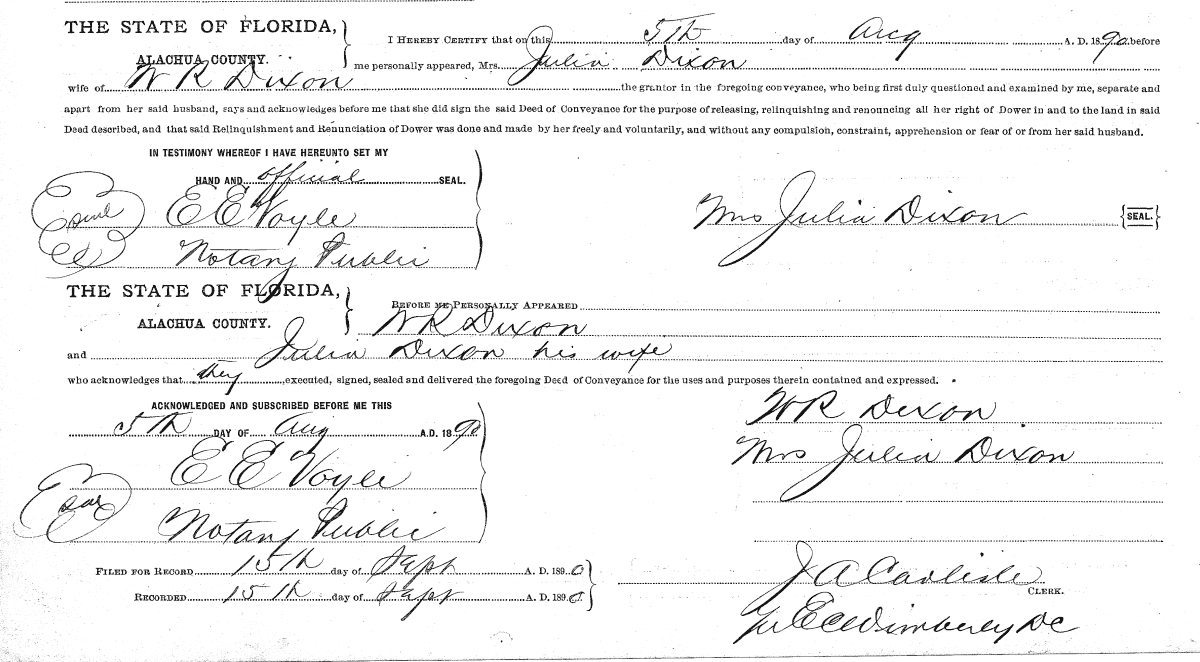 THE STATE OF FLORIDA,
ALACHUA COUNTY.
I HEREBY CERTIFY that on this 5th day of Aug A. D. 1890 before
me personally appeared, Mrs. Julia Dixon
wife of W R Dixon the grantor in the foregoing conveyance, who being first duly questioned and examined by me, separate and
apart from her said husband, says and acknowledges before me that she did sign the said Deed of Conveyance for the purpose of releasing, relinquishing and renouncing all her right of Dower in and to the land in said
Deed described, and that said Relinquishment and Renunciation of Dower was done and made by her freely and voluntarily, and without any compulsion, constraint, apprehension or fear of or from her said husband.
IN TESTIMONY WHEREOF I HAVE HEREUNTO SET MY
HAND AND official SEAL.
seal E E Voyle
Notary Public
Mrs Julia Dixon {SEAL.}
THE STATE OF FLORIDA,
ALACHUA COUNTY.
BEFORE ME PERSONALLY APPEARED
W R Dixon
and Julia Dixon his wife
who acknowledges that they executed, signed, sealed and delivered the foregoing Deed of Conveyance for the uses and purposes therein contained and expressed.
ACKNOWLEDGED AND SUBSCRIBED BEFORE ME THIS
5th DAY OF Aug A.D. 1890
E E Voyle
seal
Notary Public
W R Dixon
Mrs Julia Dixon
FILED FOR RECORD 15th day of Sept A. D. 1890
RECORDED 15th day of Sept A. D. 1890
J A Carlisle
CLERK.
E C Wimberly DC